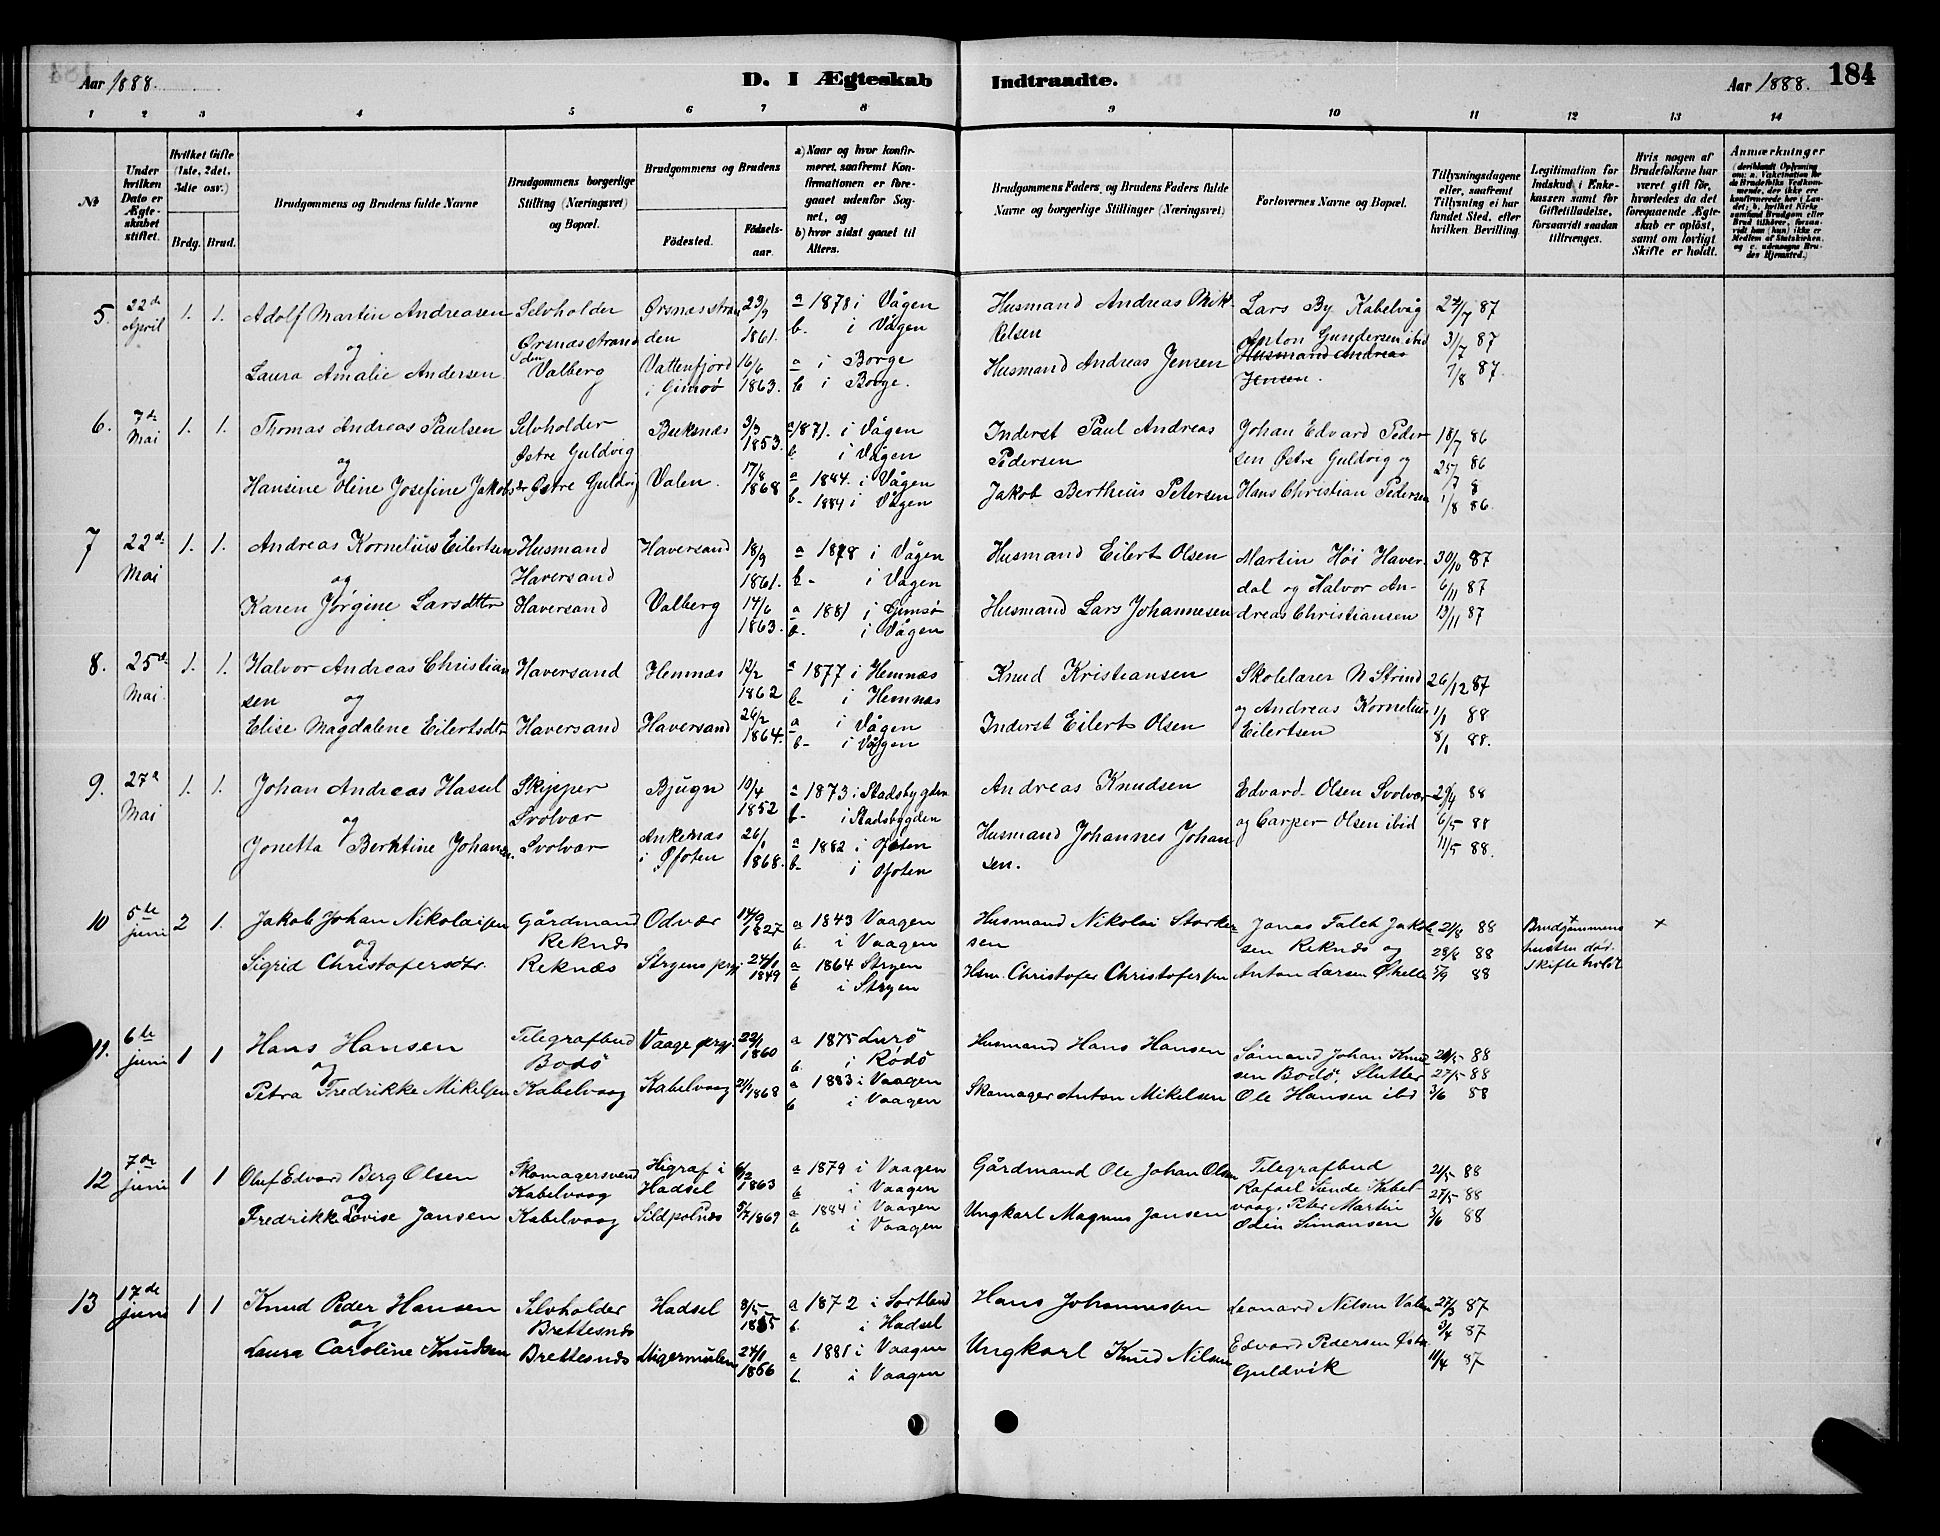 Aar 1888. D. I Ægteskab Indtraadte. Aar 1888. 184
1 2 3 4 5 6 7 8 9 10 11 12 13 14
No
Under hvilken Dato er Ægteskabet stiftet.
Hvilket Gifte (1ste, 2det, 3die osv.)
Brdg. Brud.
Brudgommens og Brudens fulde Navne
Brudgommens borgerlige Stilling (Næringsvei) og Bopæl.
Brudgommens og Brudens
Fødested. Fødselsaar.
a) Naar og hvor konfirmeret, saafremt Konfirmationen er foregaaet udenfor Sognet, og
b) hvor sidst gaaet til Alters.
Brudgommens Faders, og Brudens Faders fulde Navne og borgerlige Stillinger (Næringsvei)
Forlovernes Navne og Bopæl.
Tillysningsdagene eller, saafremt Tillysning ei har fundet Sted, efter hvilken Bevilling.
Legitimation for Indskud i Enkekassen samt for Giftetilladelse, forsaavidt saadan tiltrænges.
Hvis nogen af Brudefolkene har været gift før, hvorledes da det foregaaende Ægteskab er opløst, samt om lovligt Skifte er holdt.
Anmærkninger
5. 22de April 1. 1. Adolf Martin Andreasen Selvholder Ørsnæsstranden 23/9 1861. a 1878 i Vågen Husmand Andreas Mikkelsen Lars By Kabelvåg 24/7 87
og Ørsnæsstranden b. i Vågen Anton Gundersen ibid 31/7 87
Laura Amalie Andersen Valberg Vattenfjord i Gimsø 16/6 1863. a i Borge b i Borge. Husmand Andreas Jensen Husmand Andreas Jensen. 7/8 87.
6. 7de Mai 1. 1. Thomas Andreas Paulsen Selvholder Østre Guldvig Buksnæs 9/3 1853. a 1871. i Vågen b. i Vågen Inderst Paul Andreas Pedersen Johan Edvard Pedersen Østre Guldvig og 18/7 86
og 25/7 86
Hansine Oline Josefine Jakobsdr Østre Guldvig Valen. 17/8 1868 a 1884. i Vågen b- 1884 i Vågen Jakob Bertheus Petersen Hans Christian Pedersen 1/8 86.
7 22de Mai 1. 1. Andreas Kornelius Eilertsen Husmand Haversand Haversand 18/9 1861. a 1878 i Vågen b- i Vågen Husmand Eilert Olsen Martin Höi Haverdal og Halvor Andreas Christiansen 30/10 87
og 6/11 87
Karen Jørgine Larsdtr Haversand Valberg 14/6 1863. a 1881 i Gimsø b. i Vågen Husmand Lars Johannesen 13/11 87
8. 25de Mai 1. 1. Halvor Andreas Christiansen Haversand Hemnæs 12/2 1862 a 1877 i Hemnæs b- i Hemnæs Knud Kristiansen Skolelærer N Strind og Andreas Kornelius Eilertsen 26/12 87
og 1/1 88
Elise Magdalene Eilertsdtr Haversand Haversand 26/2 1864. a i Vågen b- i Vågen Inderst Eilert Olsen 8/1 88.
9. 27de Mai 1. 1. Johan Andreas Hassel Skipper Svolvær Bjugn 10/4 1852 a 1873 i Stadsbygden b- i Stadsbygden Andreas Knudsen Edvard Olsen Svolvær og Casper Olsen ibid 29/4 88
og 6/5 88
Jonetta Berntine Johans. Svolvær Ankenæs i Ofoten 26/1 1868. a 1882 i Ofoten b- i Ofoten Husmand Johannes Johansen. 11/5 88.
10 5te juni 2 1. Jakob Johan Nikolaisen Gårdmand Reknæs Odvær 14/9 1827 a 1843 Vaagen b. i Vaagen Husmand Nikolai Storkersen Jonas Falch Jakobsen Reknæs og 21/8 88 Brudgommens hustru død. Skifte holdt x
og 28/8 88
Sigrid Christofersdtr. Reknæs Stryens prgj 24/1 1849 a 1864 Stryen b i Stryen Hsm. Christofer Christofersen Anton Larsen 5/9 88
11. 6te juni 1 1 Hans Hansen Telegrafbud Bodö Vaage prgj. 22/1 1860 a 1875 Lurö b. i Rödö Husmand Hans Hansen Sømand Johan Knudsen Bodö, Slutter Ole Hansen ibid 20/5 88
og 27/5 88
Petra Fredrikke Mikelsen Kabelvaag Kabelvaag 21/1 1868 a 1883 i Vaagen b i Vaagen Skomager Anton Mikelsen 3/6 88
12 7de juni 1 1 Oluf Edvard Berg Olsen Skomagersvend Kabelvaag Higraf i Hadsel 6/2 1863 a 1879 i Vaagen b i Vaagen Gårdmand Ole Johan Olsen Telegrafbud Rafael Sunde Kabelvaag, Peter Martin Odin Simonsen 21/5 88
og 27/5 88
Fredrikke Lovise Jansen Kabelvaag Sildpolnes 9/7 1869 a 1884 i Vaagen b i Vaagen Ungkarl Magnus Jansen 3/6 88
13 17de juni 1 1 Knud Peder Hansen Selvholder Brettesnæs Hadsel 8/5 1855 a 1872 i Sortland b. i Hadsel Hans Johannessen Leonard Nilsen Valen 27/3 87
og 3/4 87
Laura Caroline Knudsen Brettesnæs Digermulen 24/1 1866 a 1881 i Vaagen b. i Vaagen Ungkarl Knud Nilsen Edvard Pedersen Østre Guldvik 11/4 87